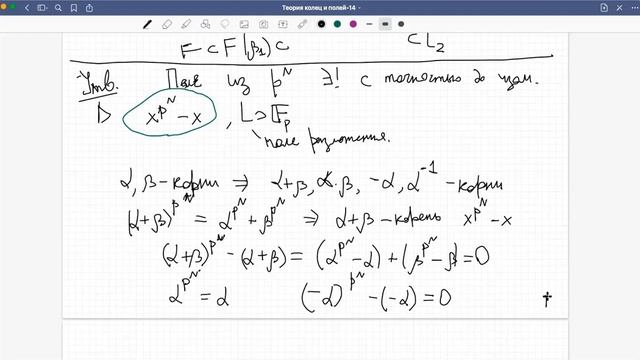 Теория колец и полей-14
F ⊂ F(β₁) ⊂ ⊂ L₂
Утв. Поле из pᴺ ∃! с точностью до изом.
▷ x^{pᴺ} − x, L ⊃ 𝔽ₚ
поле разложения.
α, β − корни ⇒ α+β, α·β, −α, α⁻¹ − корни
(α+β)^{pᴺ} = α^{pᴺ} + β^{pᴺ} ⇒ α+β − корень x^{pᴺ} − x
(α+β)^{pᴺ} − (α+β) = (α^{pᴺ} − α) + (β^{pᴺ} − β) = 0
α^{pᴺ} = α (−α)^{pᴺ} − (−α) = 0